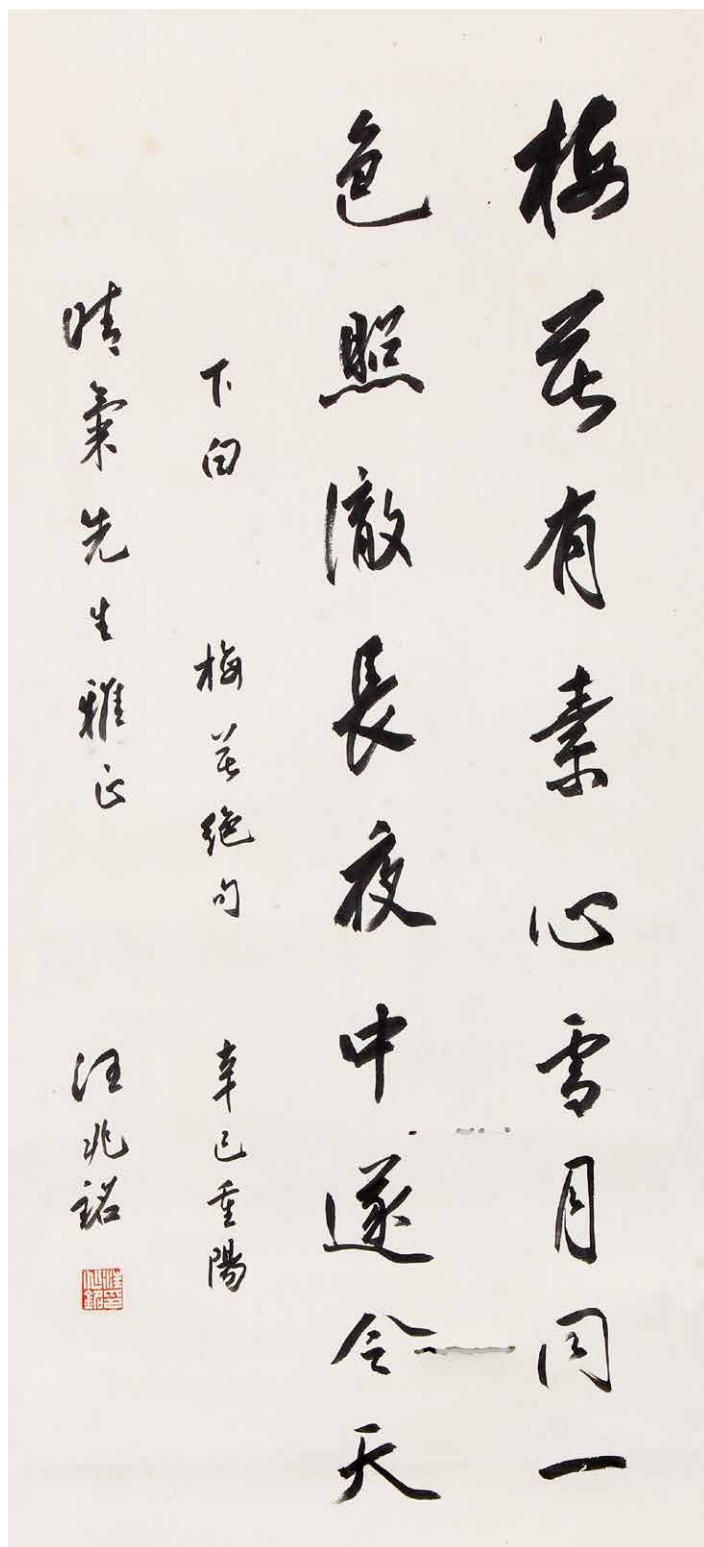 梅花有素心雪月同一
色照澈長夜中遂令天
下白 梅花絕句 辛巳重陽
晴氣先生雅正 汪兆銘
汪兆銘